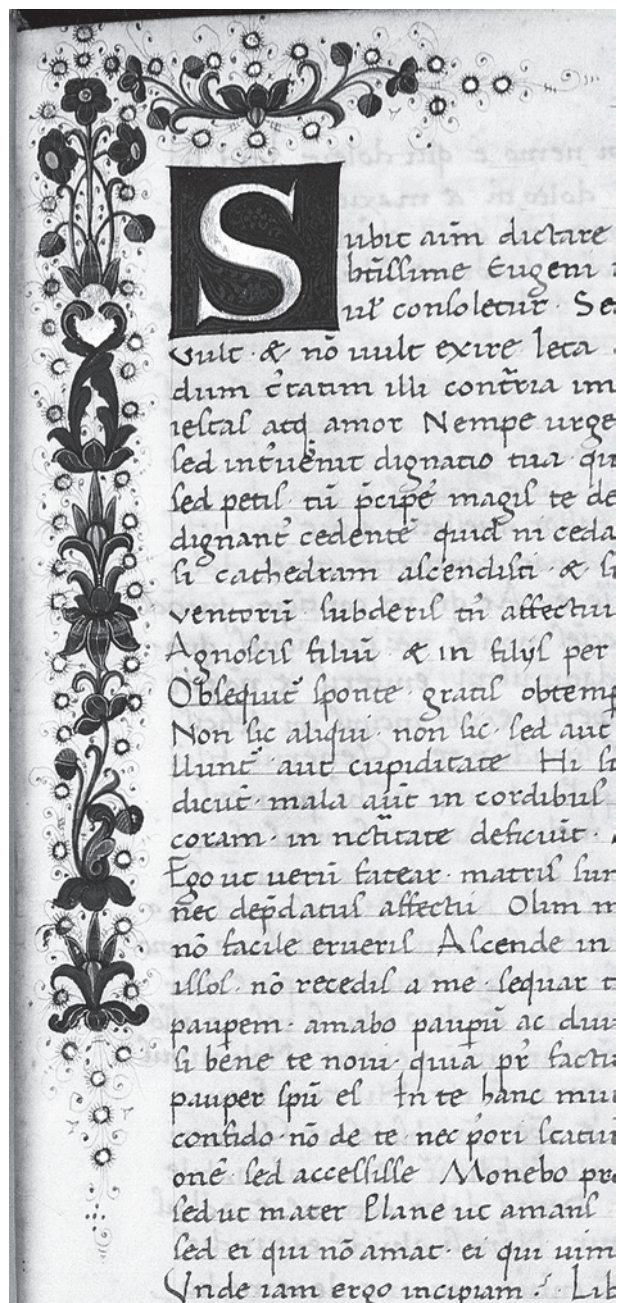 Subit aīm dictare
btīssime Eugeni
ul̄ consoletur̄. Se
vult · & nō uult exire leta
dum c̄tatim illi cont̄ria im
iestas atq̨ amor Nempe urge
sed int̄uenit dignatio tua · qu
sed petis · tū p̄cipe magis te de
dignant̄ cedente quid ni ceda
si cathedram ascendisti · & si
ventorū subderis tn̄ affectui
Agnoscis filiū & in filijs per
Obsequit̄ sponte gratis obtemp
Non sic aliqui · non sic · sed aut
llunt̄ aut cupiditate Hi s
dicūt · mala aūt in cordibus
coram · in nc̄titate deficiūt ·
Ego ut uerū fatear · matris sum
nec dep̄datus affectu Olim m
nō facile erueris Ascende in
illos · nō recedis a me · sequar t
paupem · amabo paupū ac diui
si bene te noui · quia pr̄ factu
pauper spū es In te hanc mu
confido · nō de te · nec p̄ori statui
onē · sed accessisse Monebo pro
sed ut mater Plane ut amans
sed ei qui nō amat · ei qui uim
Vnde iam ergo incipiam ? Lib